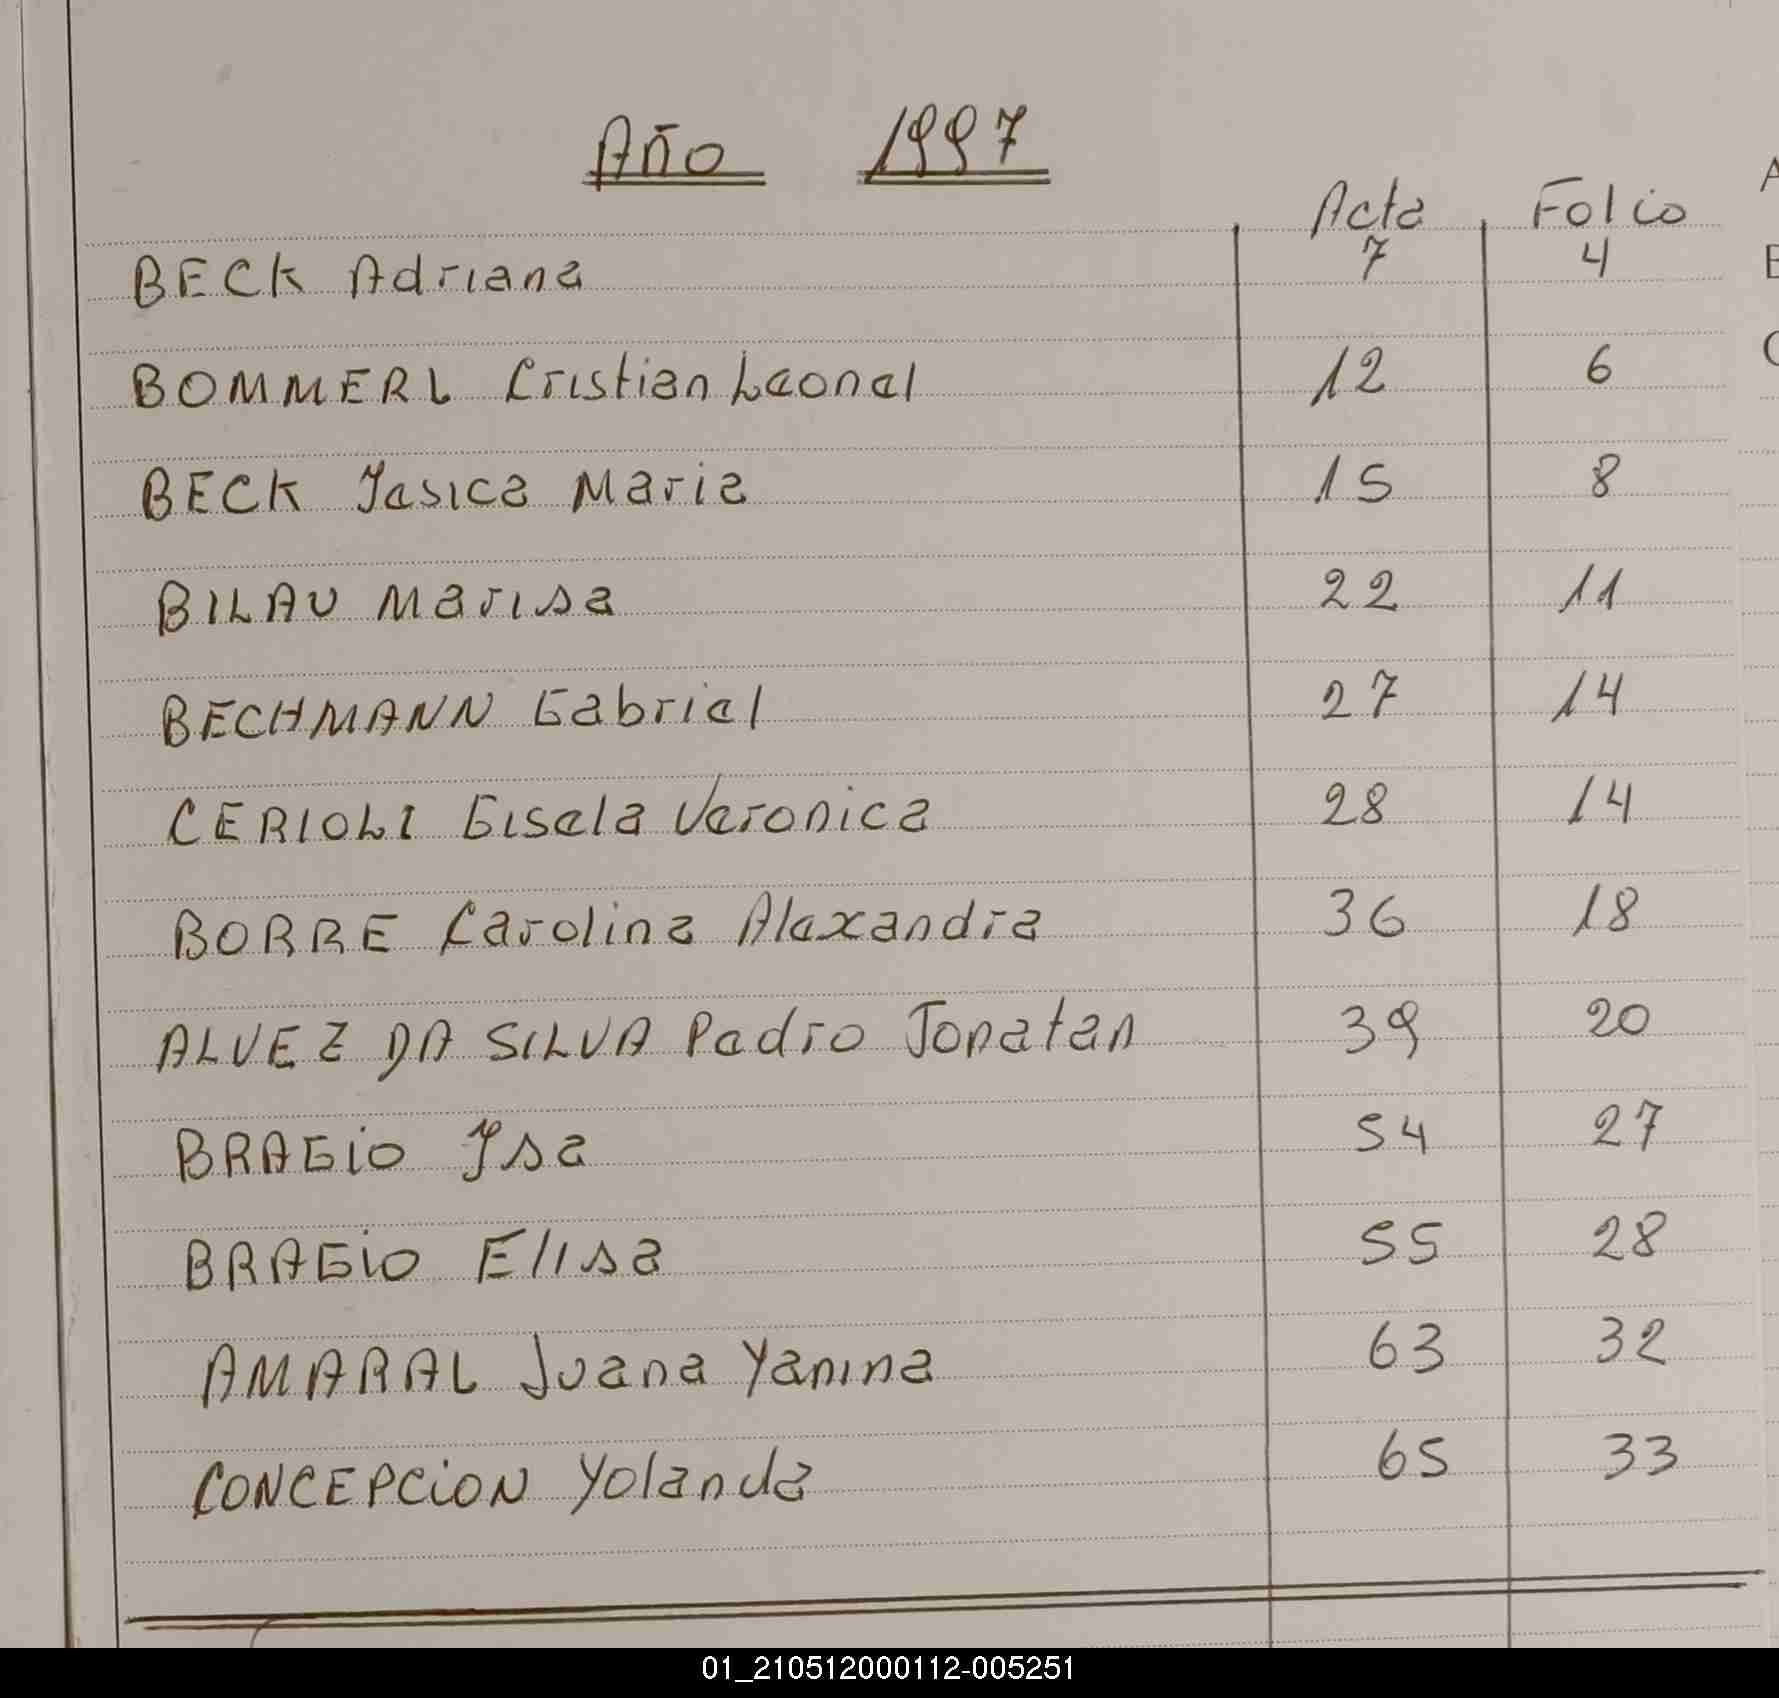 Año 1997
Acta Folio
BECK Adriana 7 4
BOMMERL Cristian Leonel 12 6
BECK Yesica Maria 15 8
BILAU Marisa 22 11
BECHMANN Gabriel 27 14
CERIOLI Gisela Veronica 28 14
BORRE Carolina Alexandra 36 18
ALVEZ DA SILVA Pedro Jonatan 39 20
BRAGiO Ysa 54 27
BRAGiO Elisa 55 28
AMARAL Juana Yanina 63 32
CONCEPCiON Yolanda 65 33
01_210512000112-005251